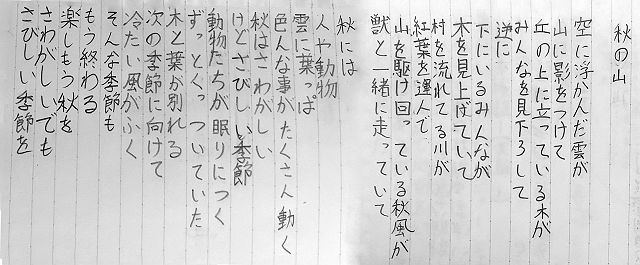 秋の山
空に浮かんだ雲が
山に影をつけて
丘の上に立っている木が
みんなを見下ろして
逆に
下にいるみんなが
木を見上げていて
村を流れてる川が
紅葉を運んで
山を駆け回っている秋風が
獣と一緒に走っていて
秋には
人や動物
雲に葉っぱ
色んな事がたくさん動く
秋はさわがしい
けどさびしい季節
動物たちが眠りにつく
ずっとくっついていた
木と葉が別れる
次の季節に向けて
冷たい風がふく
そんな季節も
もう終わる
楽しもう秋を
さわがしいでも
さびしい季節を